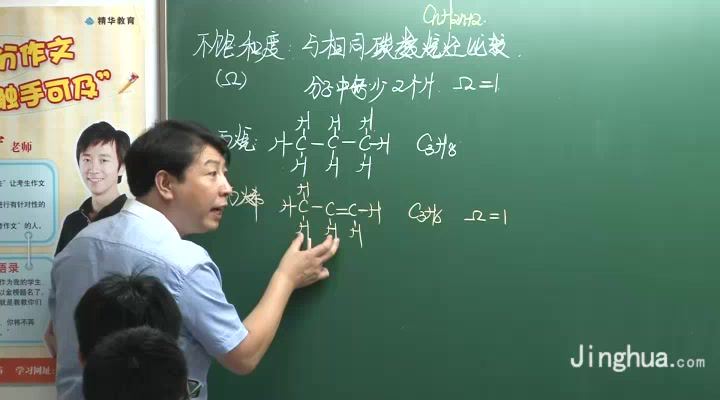 CnH2n+2
不饱和度:与相同碳数烷烃比较.
(Ω) 分子中每少2个H. Ω=1
丙烷: H-C-C-C-H C3H8
丙烯 H-C-C=C-H C3H6 Ω=1
精华教育
份作文
触手可及”
老师
让考生作文
进行有针对性的
考作文”的人。
语录
作为我的学生
以金榜题名了,
就是教教你们
你将不再
学习网址:
Jinghua.com